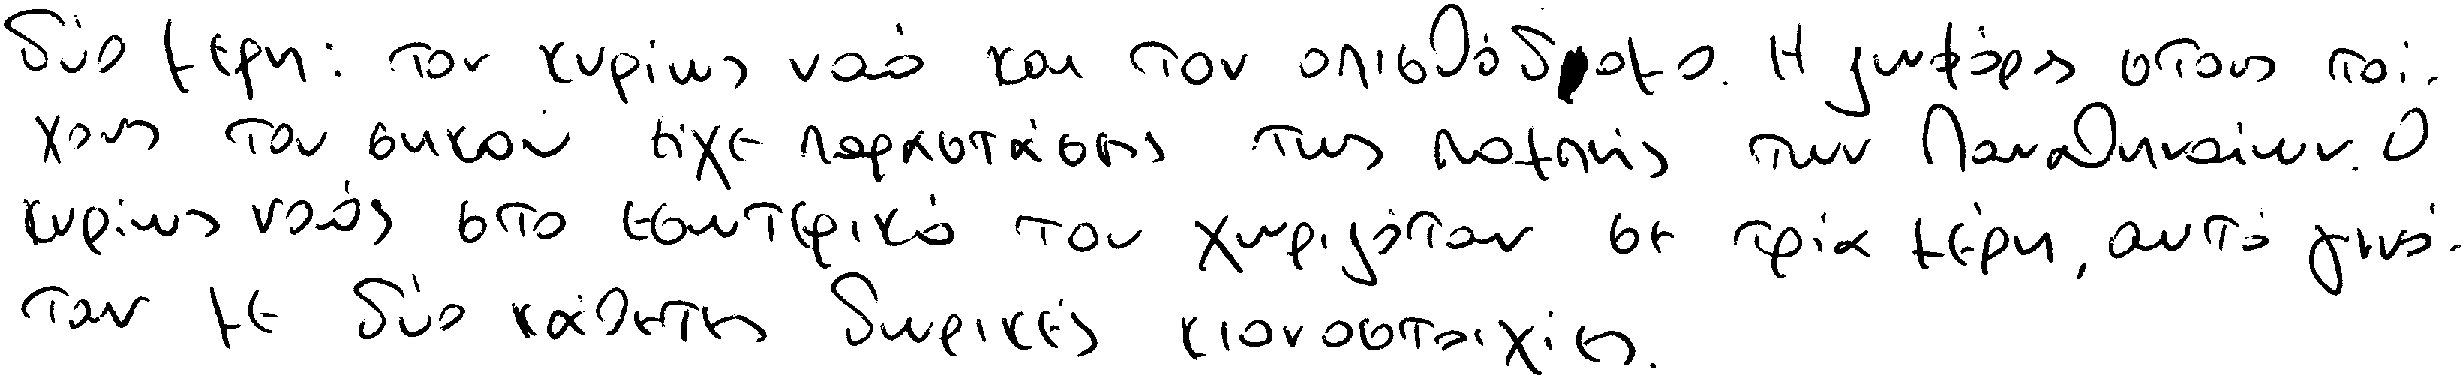 δύο μερη: τον κυρίως ναό και τον οπισθόδρομο. Η ζωφόρς στους τοί-
χους του σηκού είχε παραστάσεις της πομπής των Παναθηναίων. Ο
κυρίως ναός στο εσωτερικό του χωριζόταν σε τρία μέρη, αυτό γινό-
ταν με δύο κάθετες δωρικές κιονοστοιχίες.